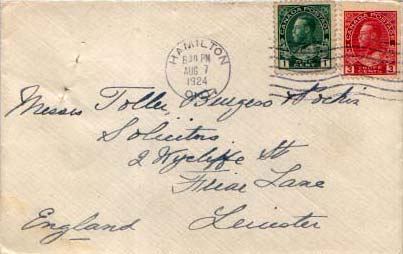 CANADA POSTAGE
1 CENT 1
CANADA POSTAGE
3 CENTS 3
HAMILTON
PM
AUG 7
1924
ONT
Messrs Toller, Burgess
Solicitors
2 Wycliffe St
Friar Lane
Leicester
England